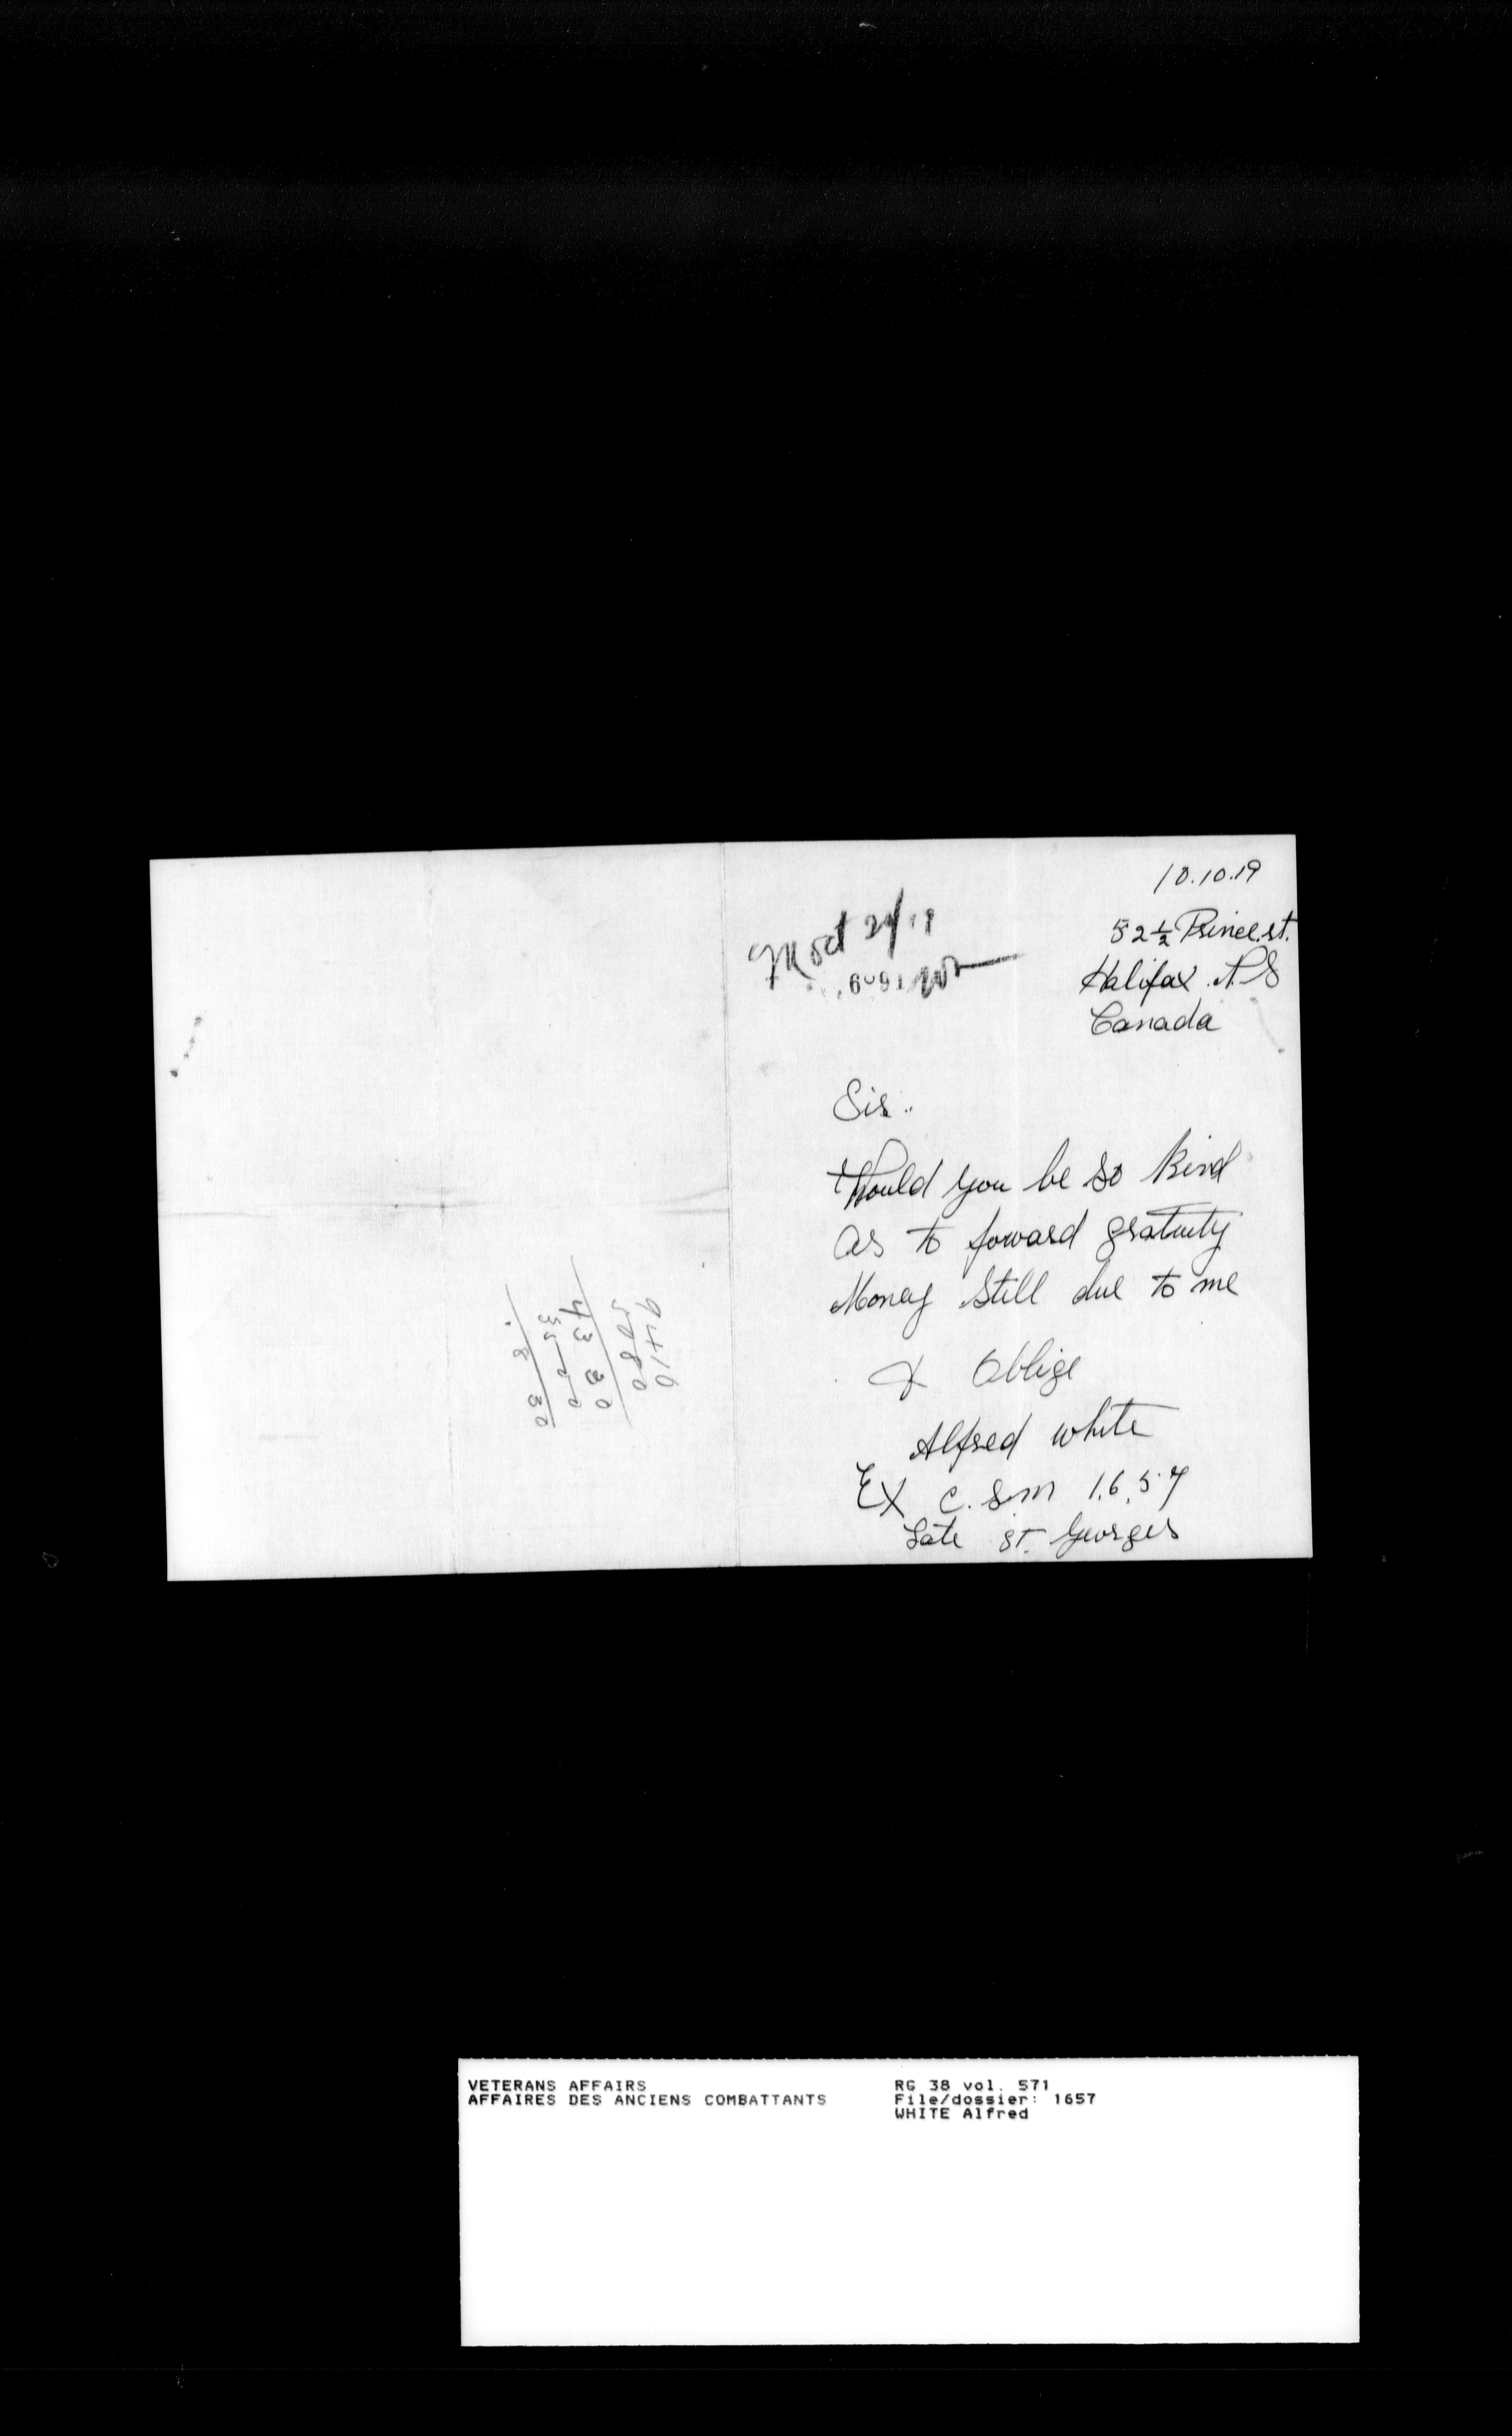 10.10.19
52½ Prince.st.
Halifax. N.S
Canada
Oct 29/19
Sir..
Would you be so kind
as to foward gratuity
Money still due to me
& Oblige
Alfred white
Ex C. S.m 1.6.5.7
Late St. Georges
94 10
50 80
43 30
35 00
8 30
VETERANS AFFAIRS
AFFAIRES DES ANCIENS COMBATTANTS
RG 38 vol. 571
File/dossier: 1657
WHITE Alfred